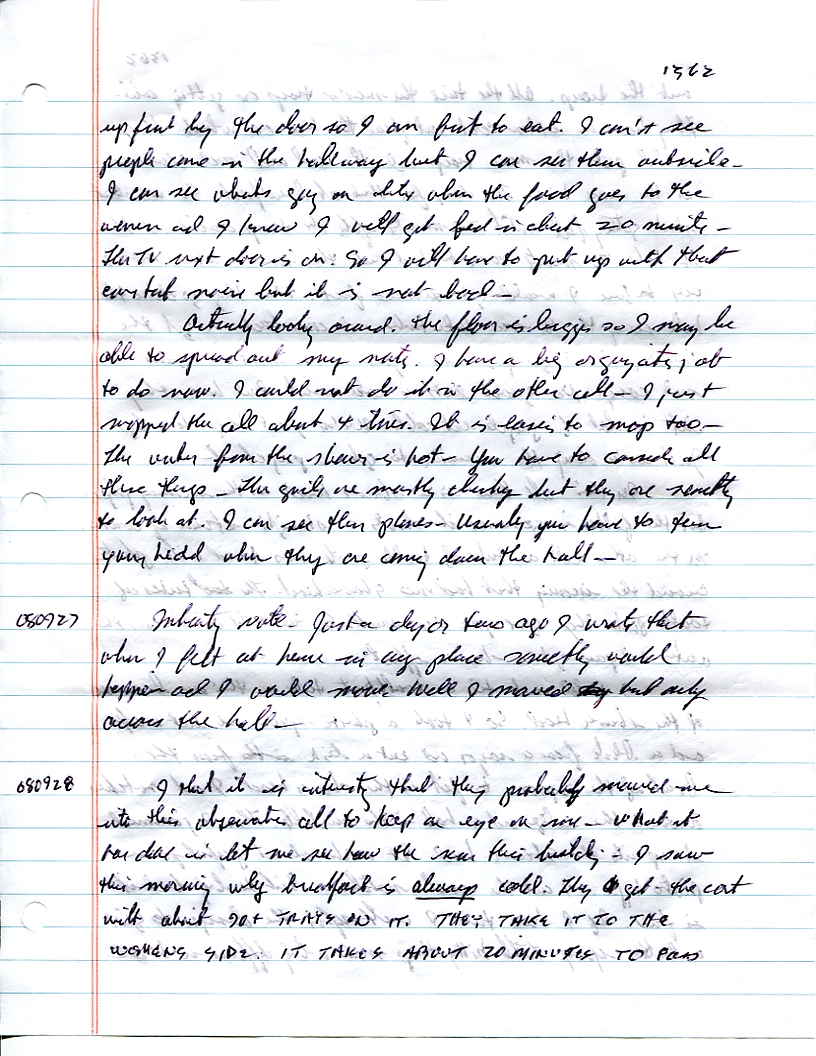 1362
up front by the door so I am first to eat. I can't see
people come in the hallway but I can see them outside -
I can see whats going on datex when the food goes to the
women and I know I will get fed in about 20 minutes -
The TV next door is on. So I will have to put up with that
constant noise but it is not bad -
Actually looking around. the floor is bigger so I may be
able to spread out my notes. I have a big organization job
to do now. I could not do it in the other cell - I just
mopped the cell about 4 times. It is easier to mop too -
The water from the shower is hot - You have to consider all
these things - The girls are mostly but they are something
to look at. I can see them please - Usually you have to turn
your head when they are coming down the hall -
080927 Minority note - Just a day or two ago I wrote that
when I felt at home in any place something would
happen and I would move Well I moved but only
across the hall -
080928 I that it is interesting that they probably moved me
into this observation cell to keep an eye on me - What it
has done is let me see how the run this building - I saw
this morning why breakfast is always cold. They get the cart
with about 90+ TRAYS ON IT. THEY TAKE IT TO THE
WOMENS SIDE. IT TAKES ABOUT 20 MINUTES TO PASS